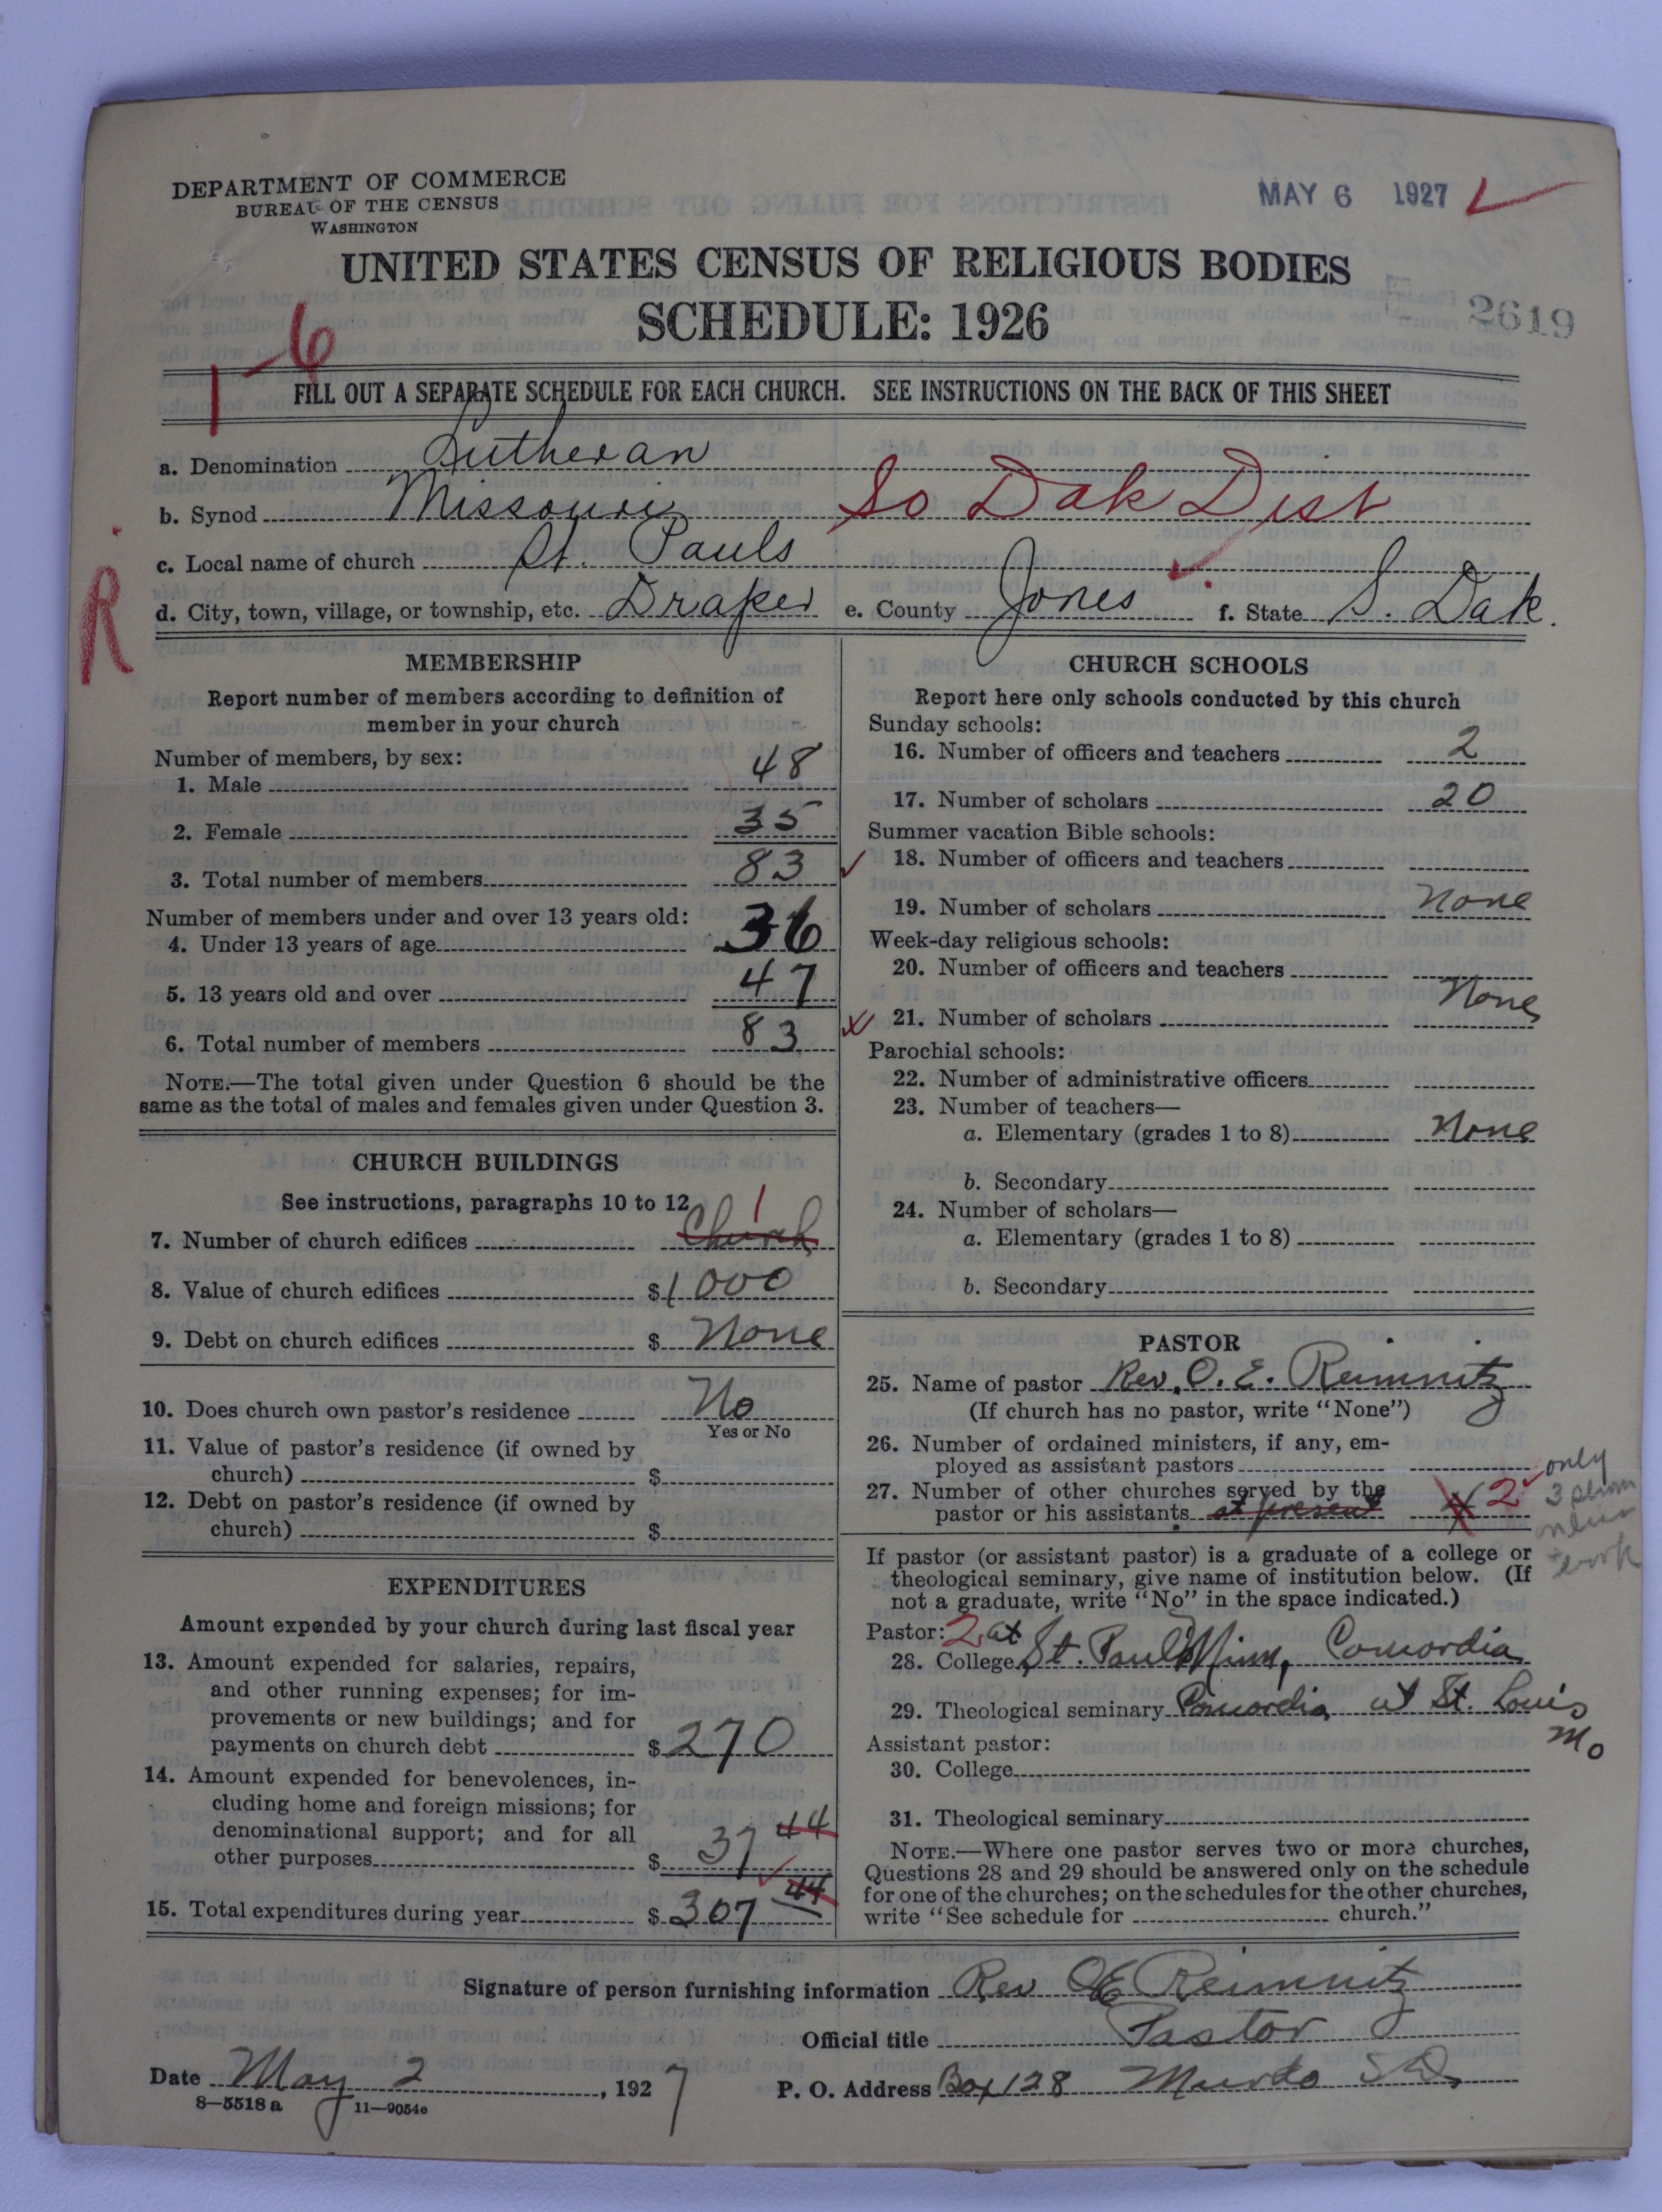 DEPARTMENT OF COMMERCE
BUREAU OF THE CENSUS
WASHINGTON
MAY 6 1927
UNITED STATES CENSUS OF RELIGIOUS BODIES
SCHEDULE: 1926
2619
1-6
FILL OUT A SEPARATE SCHEDULE FOR EACH CHURCH. SEE INSTRUCTIONS ON THE BACK OF THIS SHEET
a. Denomination Lutheran
b. Synod Missouri So Dak Dist
c. Local name of church St. Pauls
d. City, town, village, or township, etc. Draper e. County Jones f. State S. Dak.
R
MEMBERSHIP
Report number of members according to definition of
member in your church
Number of members, by sex:
1. Male 48
2. Female 35
3. Total number of members 83
Number of members under and over 13 years old:
4. Under 13 years of age 36
5. 13 years old and over 47
6. Total number of members 83
NOTE.—The total given under Question 6 should be the
same as the total of males and females given under Question 3.
CHURCH BUILDINGS
See instructions, paragraphs 10 to 12
7. Number of church edifices Church 1
8. Value of church edifices $1000
9. Debt on church edifices $ None
10. Does church own pastor's residence No
Yes or No
11. Value of pastor's residence (if owned by
church) $
12. Debt on pastor's residence (if owned by
church) $
EXPENDITURES
Amount expended by your church during last fiscal year
13. Amount expended for salaries, repairs,
and other running expenses; for im-
provements or new buildings; and for
payments on church debt $270
14. Amount expended for benevolences, in-
cluding home and foreign missions; for
denominational support; and for all
other purposes $ 37 44
15. Total expenditures during year $307 44
CHURCH SCHOOLS
Report here only schools conducted by this church
Sunday schools:
16. Number of officers and teachers 2
17. Number of scholars 20
Summer vacation Bible schools:
18. Number of officers and teachers
19. Number of scholars None
Week-day religious schools:
20. Number of officers and teachers
21. Number of scholars None
Parochial schools:
22. Number of administrative officers
23. Number of teachers—
a. Elementary (grades 1 to 8) None
b. Secondary
24. Number of scholars—
a. Elementary (grades 1 to 8)
b. Secondary
PASTOR
25. Name of pastor Rev. O. E. Reimnitz
(If church has no pastor, write "None")
26. Number of ordained ministers, if any, em-
ployed as assistant pastors
27. Number of other churches served by the
pastor or his assistants at present 2
only
3
work
If pastor (or assistant pastor) is a graduate of a college or
theological seminary, give name of institution below. (If
not a graduate, write "No" in the space indicated.)
Pastor: 2 at
28. College St. Paul Minn, Concordia
29. Theological seminary Concordia at St. Louis
Mo
Assistant pastor:
30. College
31. Theological seminary
NOTE.—Where one pastor serves two or more churches,
Questions 28 and 29 should be answered only on the schedule
for one of the churches; on the schedules for the other churches,
write "See schedule for church."
Signature of person furnishing information Rev OE Reimnitz
Official title Pastor
Date May 2, 1927 P. O. Address Box 128 Murdo S D,
8—5518 a 11—9054e